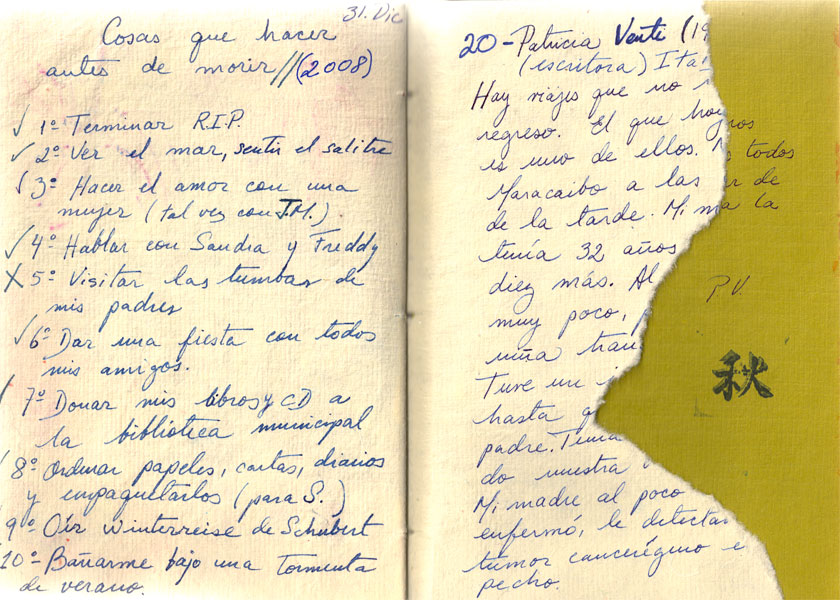 31. Dic
Cosas que hacer
antes de morir//(2008)
✓ 1º Terminar R.I.P.
✓ 2º Ver el mar, sentir el salitre
✓ 3º Hacer el amor con una
mujer (tal vez con J.M.)
✓ 4º Hablar con Sandra y Freddy
X 5º Visitar las tumbas de
mis padres
✓ 6º Dar una fiesta con todos
mis amigos.
7º Donar mis libros y CD a
la biblioteca municipal
8º Ordenar papeles, cartas, diarios
y empaquetarlos (para S.)
9º Oír Winterreise de Schubert
10º Bañarme bajo una tormenta
de verano.
20- Patricia Venti (19
(escritora) Ita
Hay viajes que no
regreso. El que hog nos
es uno de ellos. todos
Maracaibo a las r de
de la tarde. Mi ma la
tenía 32 años
diez más. Al
muy poco,
niña tran
Tuve un
hasta q
padre. Tenía
do nuestra
Mi madre al poco
enfermó, le detectar
tumor cancerígeno e
pecho.
P.V.
秋